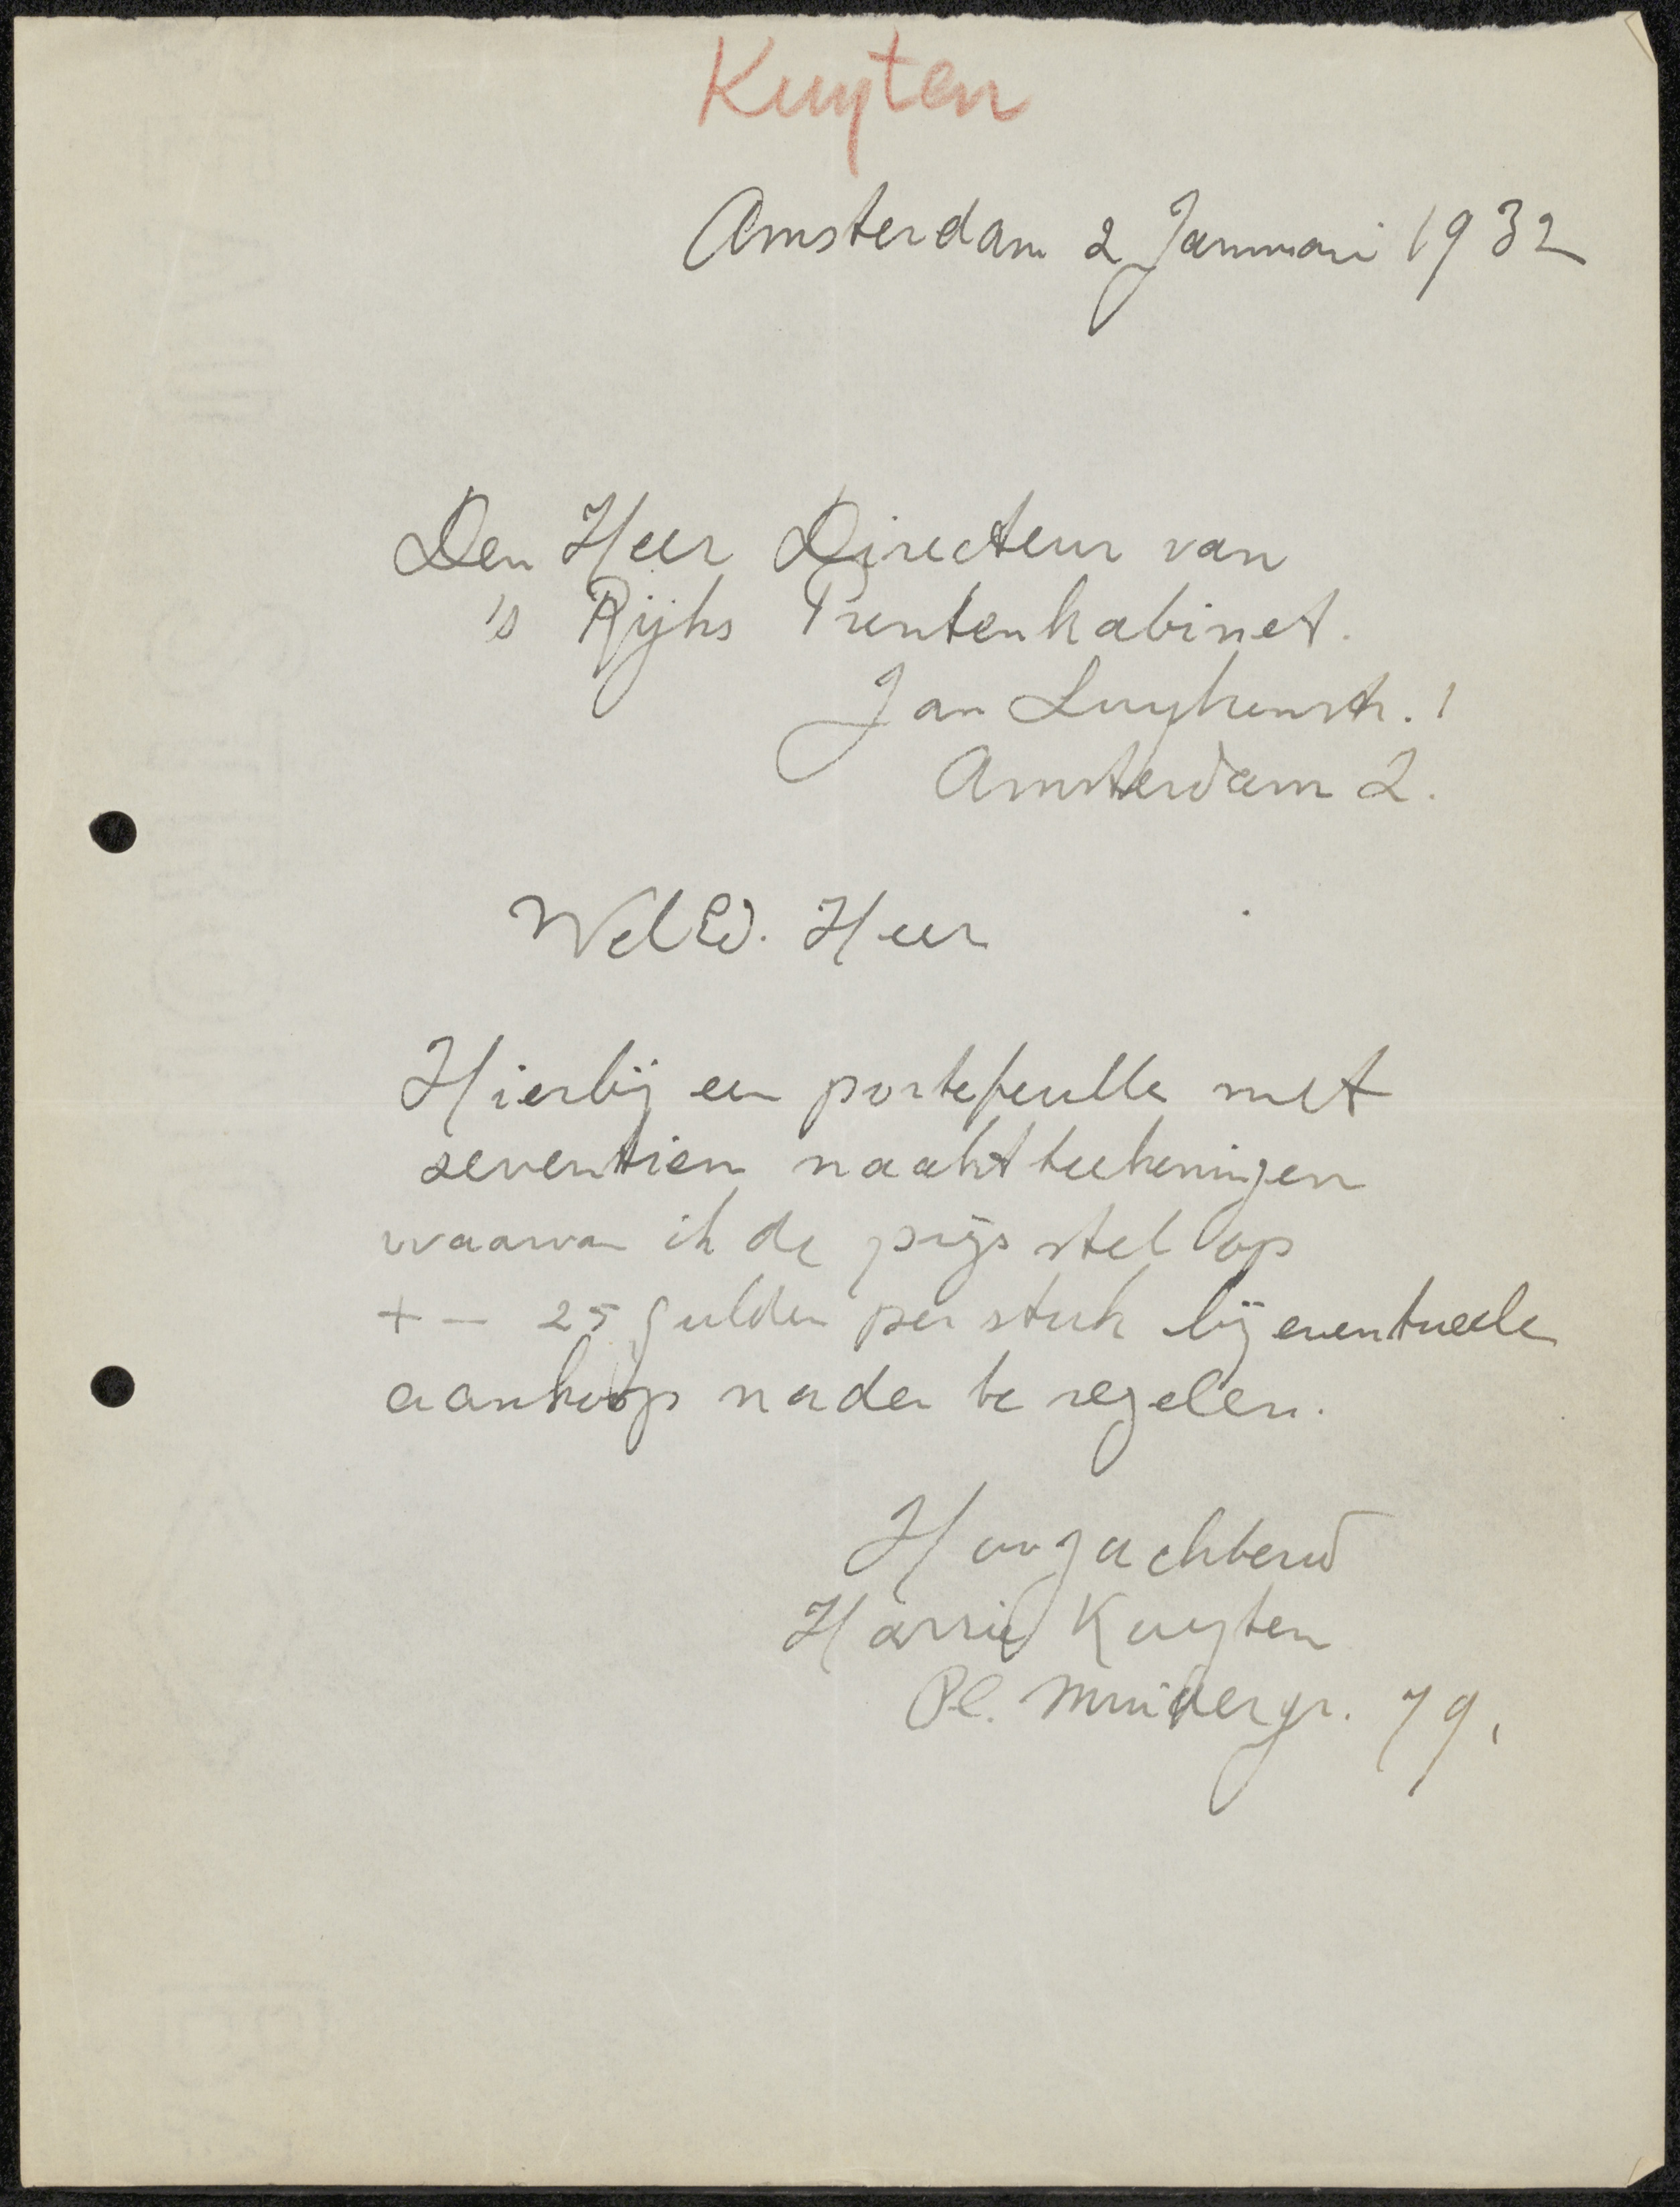 Kuyten
Amsterdam 2 Januari 1932
Den Heer Directeur van
's Rijks Prentenkabinet.
Jan Luykenstr. 1
Amsterdam 2.
WelEd. Heer
Hierbij een portefeulle met
seventien naaktteekeningen
waarvan ik de prijs stel op
+ — 25 gulden per stuk bij eventueele
aankoop nader te regelen.
Hoogachtend
Harrie Kuyten
Pl. Muidergr. 79.